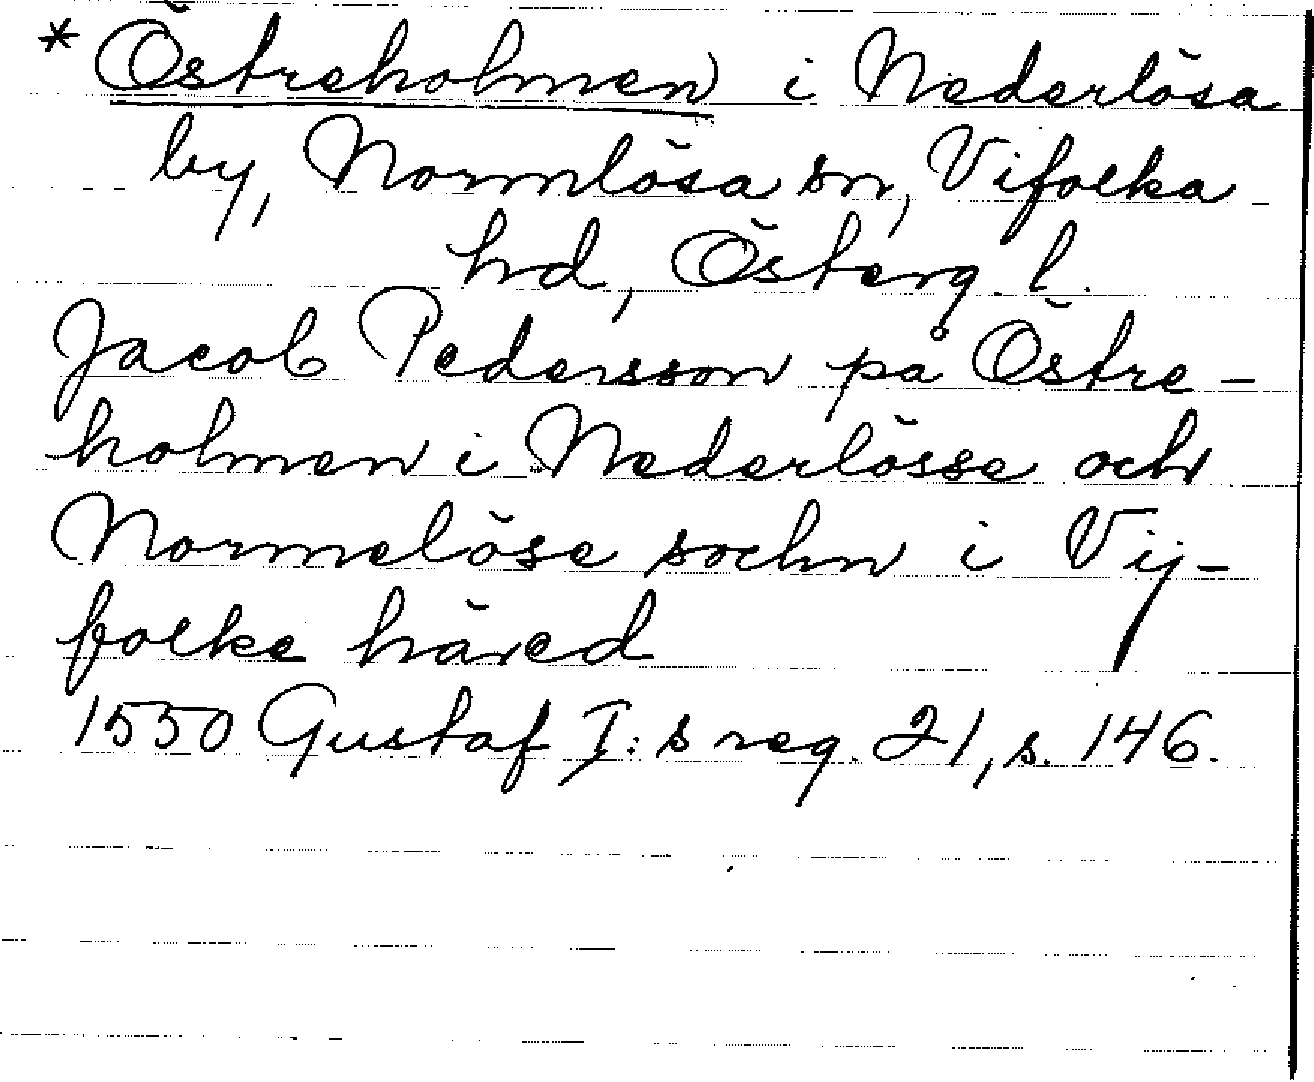 * Östreholmen i Nederlösa
by, Normlösa sn, Vifolka
hd, Österg. l.
Jacob Pedersson på Östre-
holmen i Nederlösse och
Normelöse sochn i Vij-
folke häred
1550 Gustaf I:s reg. 21, s. 146.